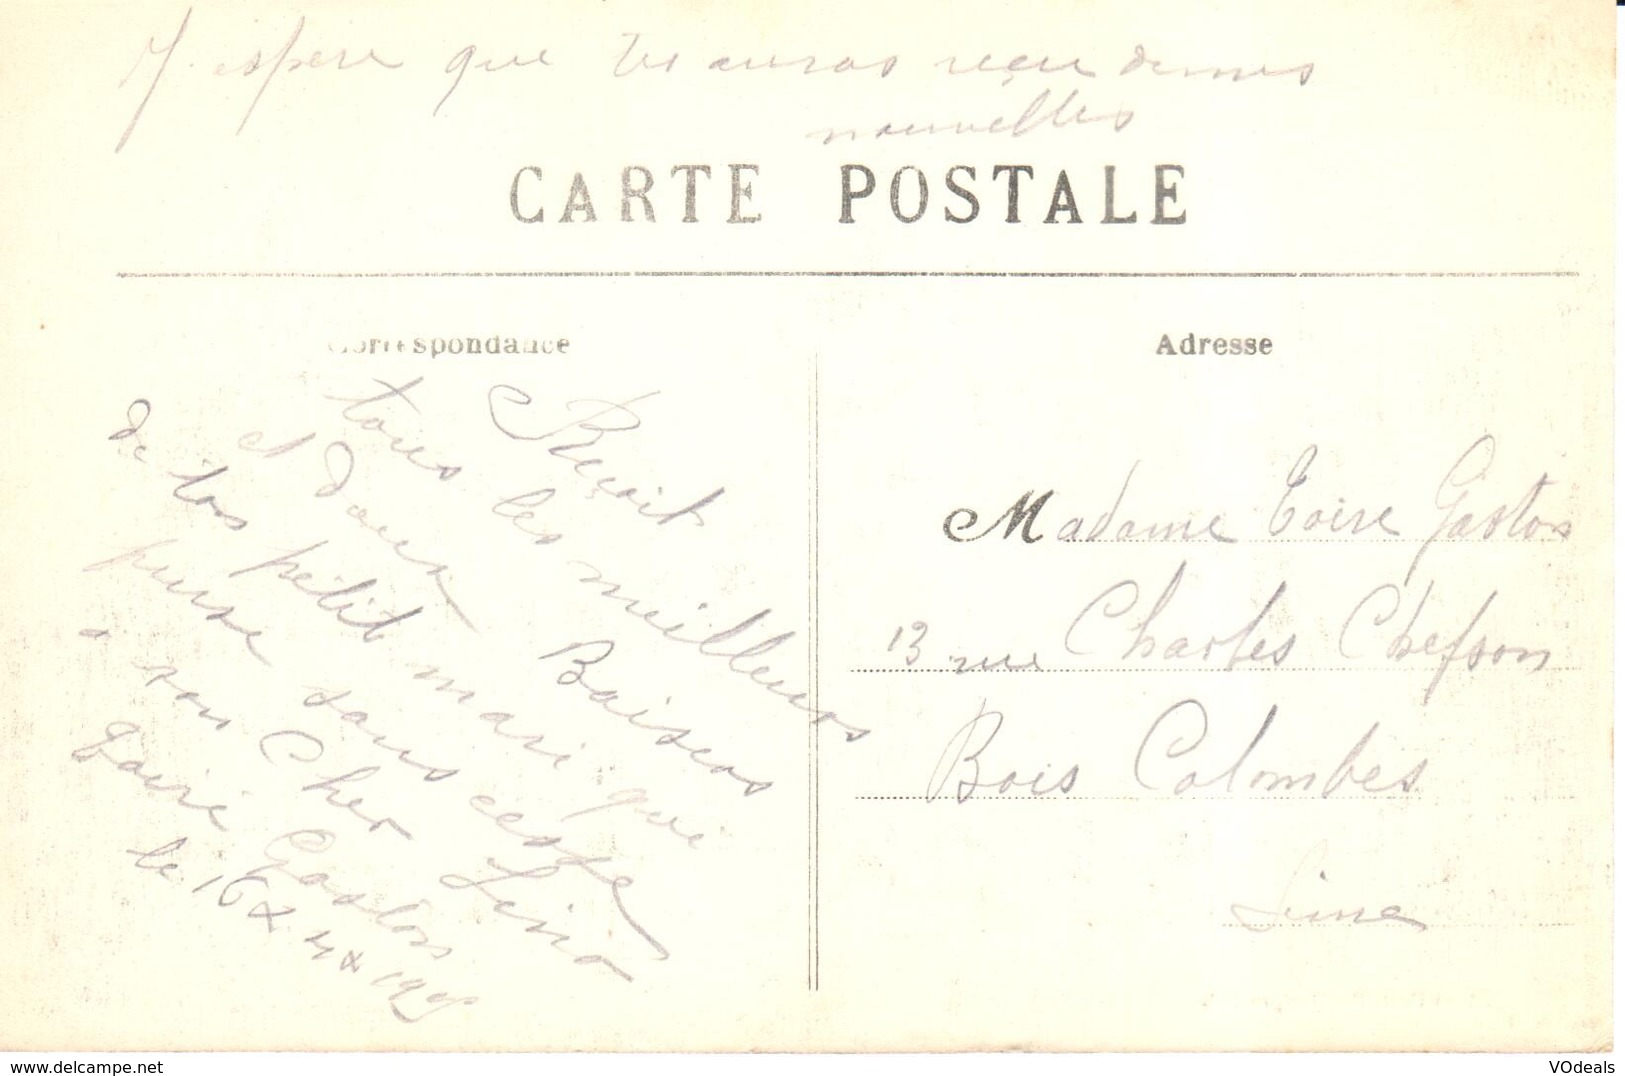 J espere que tu auras reçu de mes
nouvelles
CARTE POSTALE
Correspondance
Adresse
Reçoit
tous les meilleurs
et doux Baisers
de ton petit mari qui
pense sans cesse
a son Cher
Gaston
le 16 x 4 x 19
Madame Gaston
13 rue Charles Chefson
Bois Colombes
Seine
www.delcampe.net
VOdeals